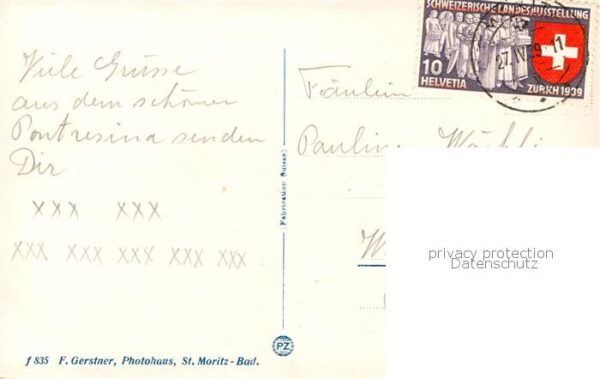 Viele Grüsse
aus dem schönen
Pontresina senden
Dir
xxx xxx
xxx xxx xxx xxx xxx
f 835 F. Gerstner, Photohaus, St. Moritz-Bad.
Fabrication Suisse
PZ
SCHWEIZERISCHE LANDESAUSSTELLUNG
10
HELVETIA
ZÜRICH 1939
27.IV.39.11
Fräulein
Pauline
privacy protection
Datenschutz